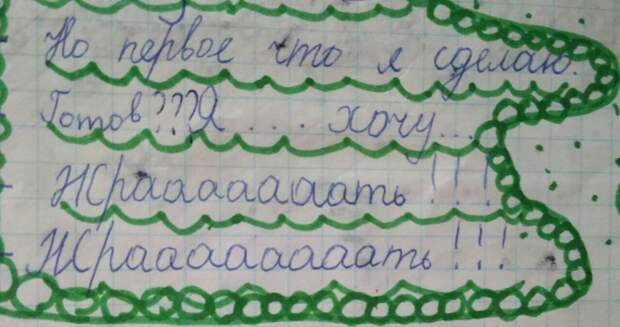 Но первое что я сделаю.
Готов???Я . . . хочу...
ЖСраааааааать !!!
ЖСрааааааааать !!!